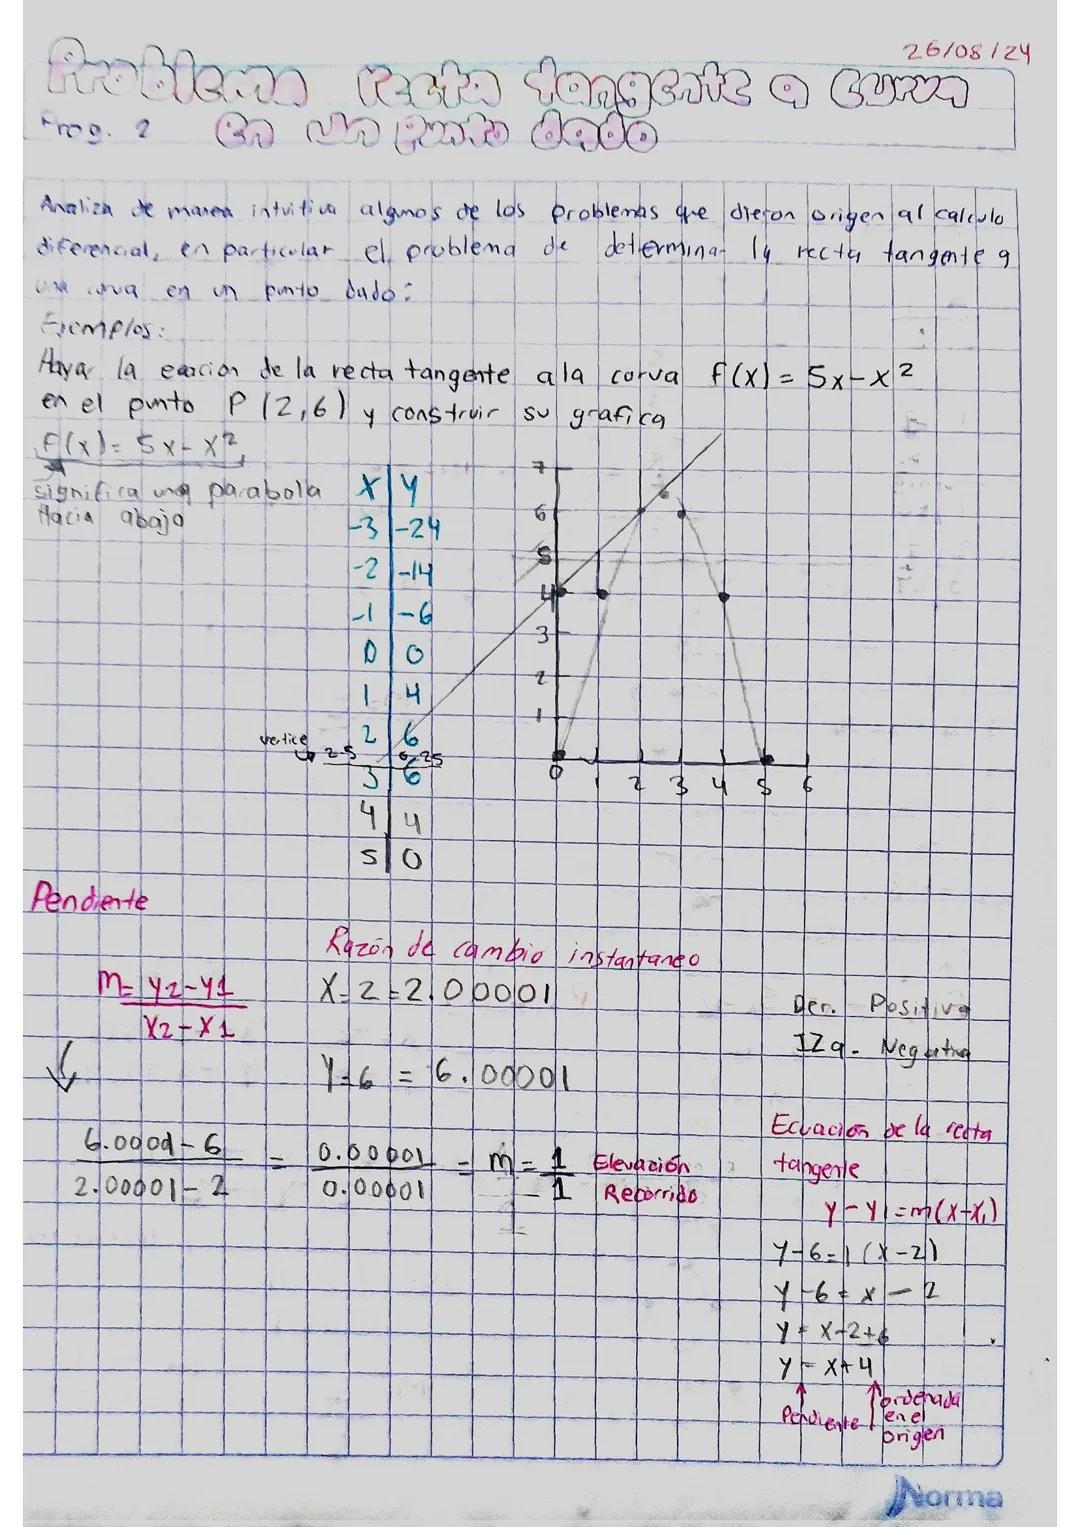 26/08/24
Problema recta tangente a curva
Prog. 2 en un punto dado
Analiza de manera intuitiva algunos de los problemas que dieron origen al calculo
diferencial, en particular el problema de determinar la recta tangente a
una curva en un punto dado:
Ejemplos:
Haya la ecacion de la recta tangente a la corva f(x) = 5x-x²
en el punto P (2,6) y construir su grafica
f(x) = 5x-x²
significa una parabola
Hacia abajo
X Y
-3 -24
-2 -14
-1 -6
0 0
1 4
2 6
vertice 2.5 6.25
3 6
4 4
5 0
7
6
5
4
3
2
1
0 1 2 3 4 5 6
Pendiente
Razón de cambio instantaneo
m= y2-y1
x2-x1
X=2=2.00001
Y=6 = 6.00001
Der. Positiva
Izq. Negativa
6.00001-6 = 0.00001 = m = 1 Elevación
2.00001-2 0.00001 1 Recorrido
Ecuacion de la recta
tangente
y-y1=m(x-x1)
y-6=1(x-2)
y-6=x-2
y=x-2+6
y=x+4
Pendiente
ordenada
en el
origen
Norma